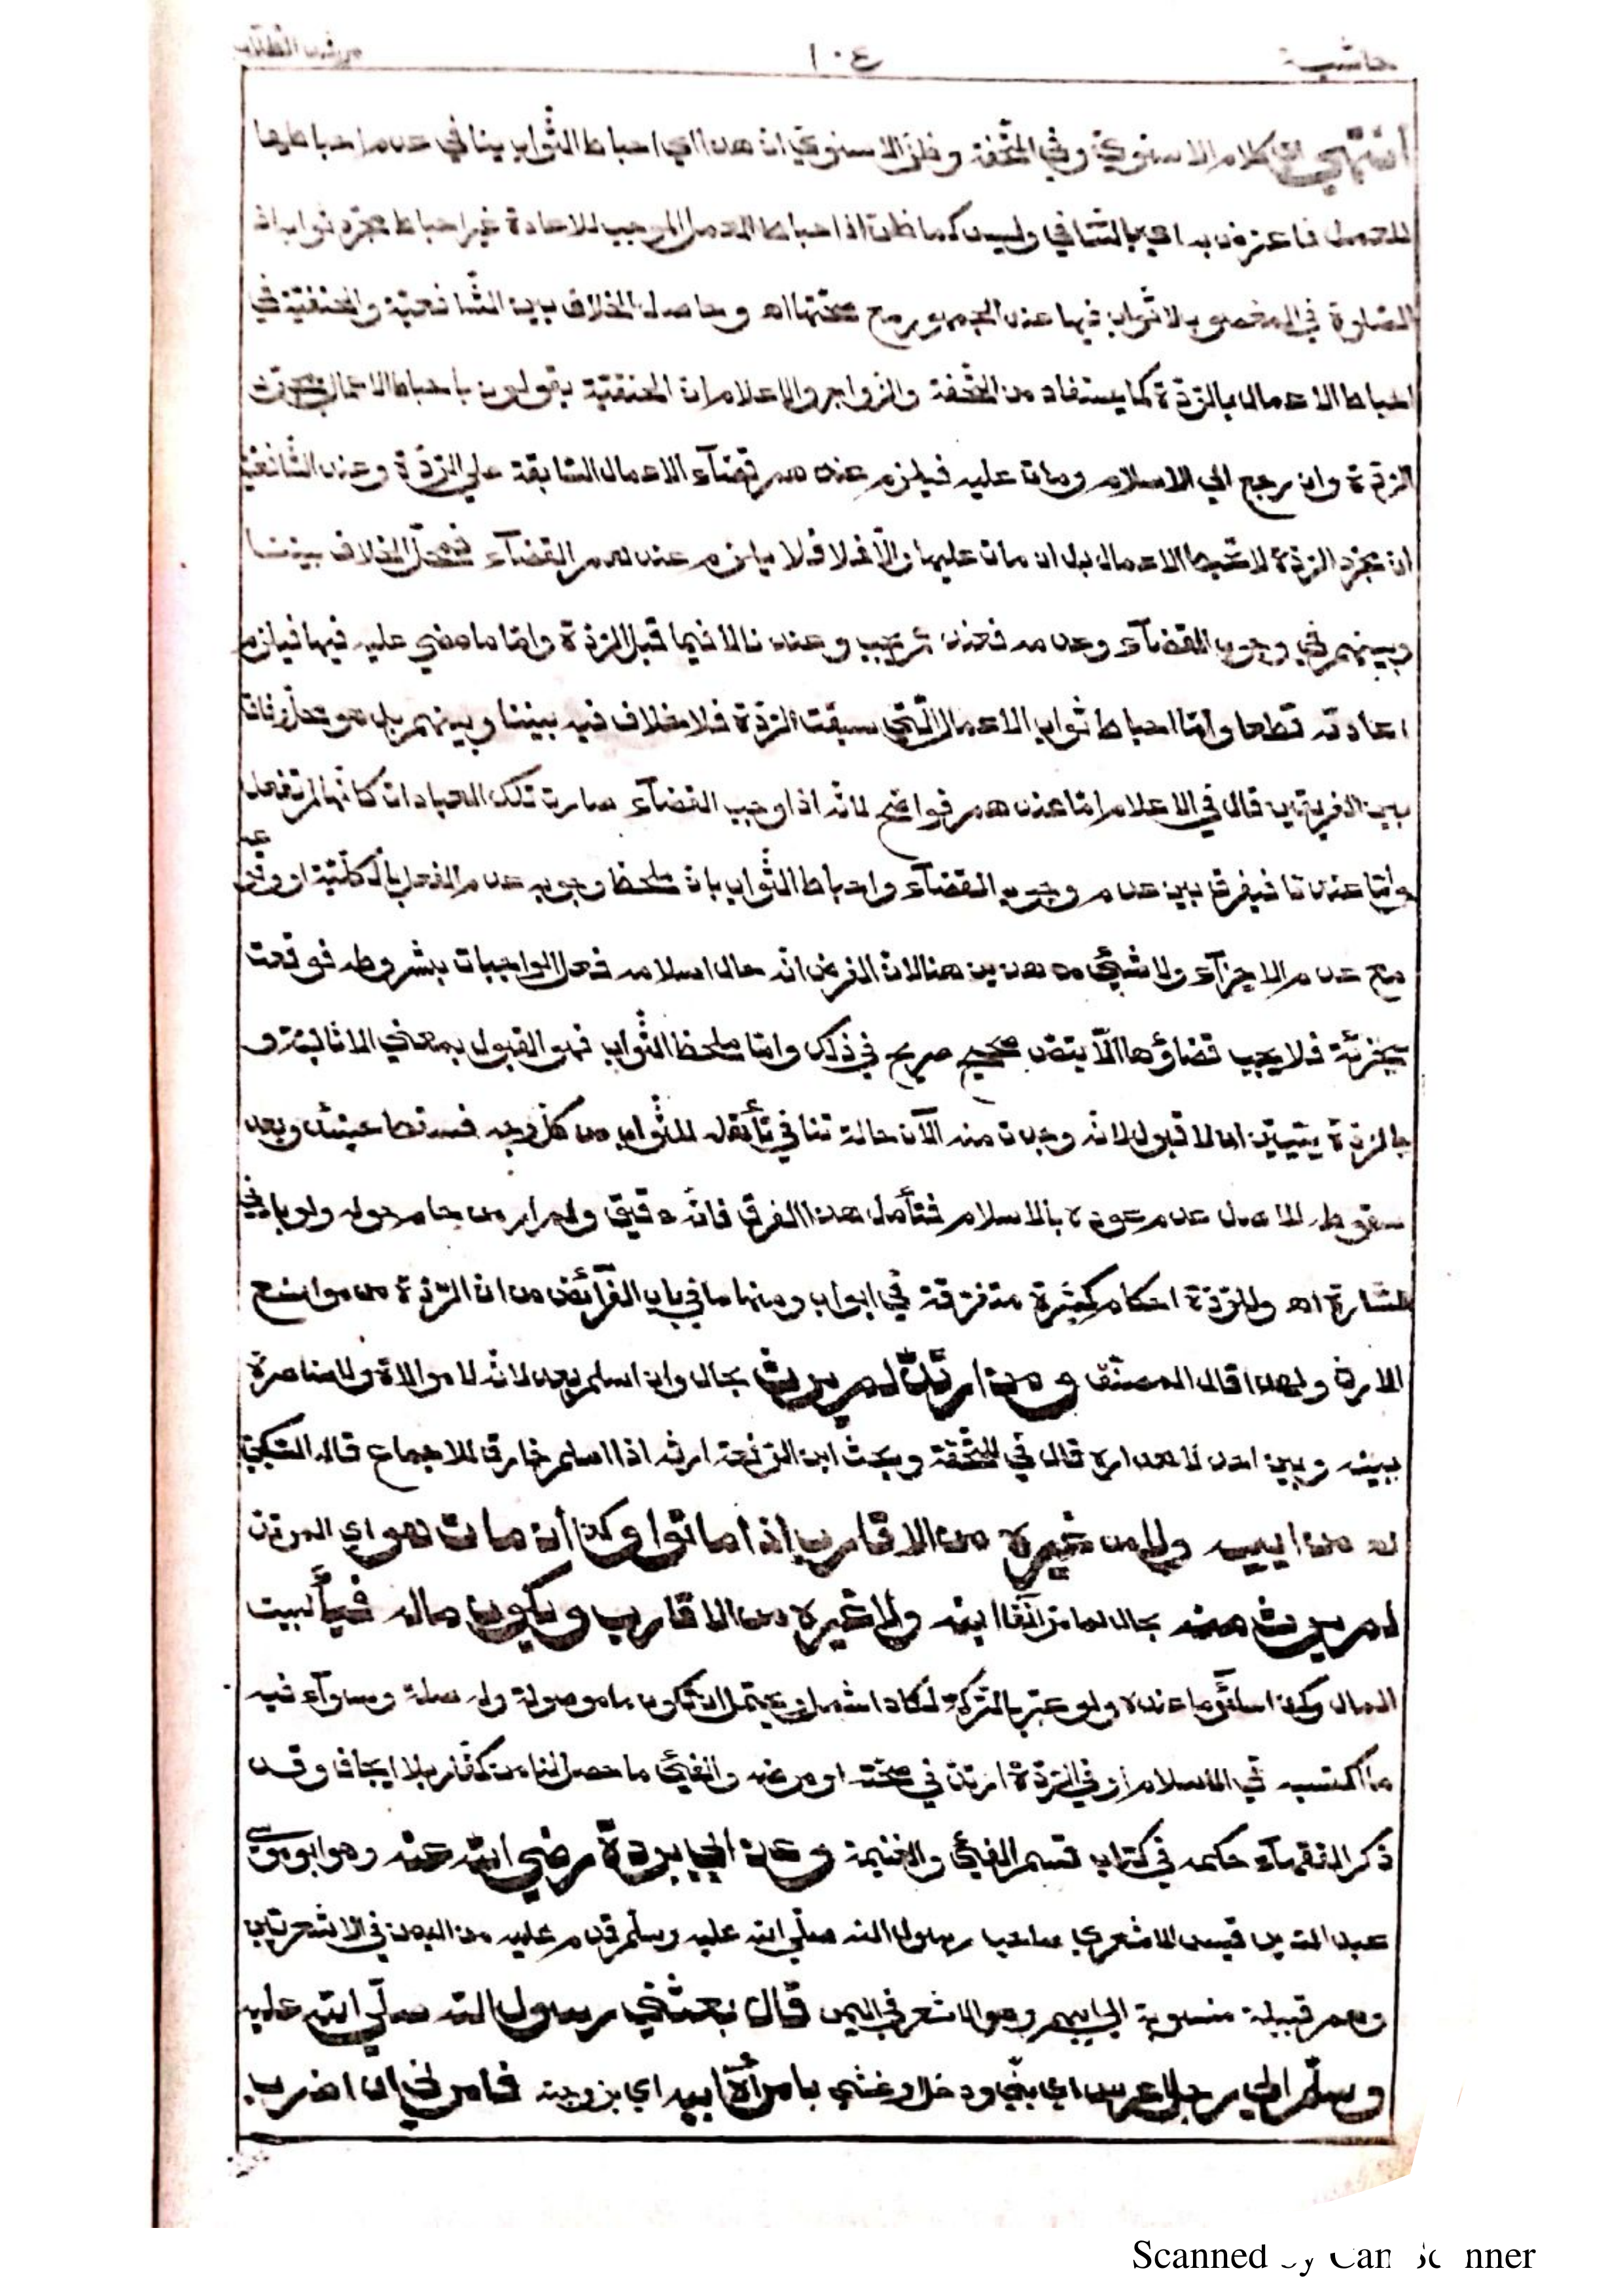 حاشية ١٠٤ مرشد الطلاب
انتهى كلام الاسنوي وفي التحفة وظن الاسنوي ان هذا اي احباط الثواب ينافي عدم احباطها
للعمل فاعترض به اي بالتنافي وليس كما ظن اذ احباط العمل الموجب للاعادة غير احباط مجرد ثوابه اذ
الصلوة في المغصوب لا ثواب فيها عند الجمهور مع صحتها اه وحاصل الخلاف بين الشافعية والحنفية في
احباط الاعمال بالردة كما يستفاد من التحفة والزواجر والاعلام ان الحنفية يقولون باحباط الاعمال
الردة وان رجع الى الاسلام ومات عليه فيلزم عندهم قضآء الاعمال السابقة على الردة وعند الشافعية
ان مجرد الردة لا تحبط الاعمال بل ان مات عليها والا فلا فلا يلزم عندهم القضآء فمحل الخلاف بيننا
وبينهم في وجوب القضآء وعدمه فعندهم يجب وعندنا لا فيما قبل الردة واما ما مضى عليه فيها فيلزم
اعادته قطعا واما احباط ثواب الاعمال التي سبقت الردة فلا خلاف فيه بيننا وبينهم بل هو محل وفاق
بين الفريقين قال في الاعلام اما عندهم فواضح لانه اذا وجب القضآء صارت تلك العبادات كانها لم تفعل
واما عندنا فيفرق بين عدم وجوب القضآء واحباط الثواب بان ملحظ وجوبه عدم الفعل بالكلية او وقوعه
مع عدم الاجزآء ولا شيئ من هذين هنا لان الفرض انه حال اسلامه فعل الواجبات بشروطه فوقعت
مجزئة فلا يجب قضاؤها الا بنص صحيح صريح في ذلك واما ملحظ الثواب فهو القبول بمعنى الاثابة و
بالردة يتبين ان لا قبول لانه وجدت منه الآن حالة تنافي تأهله للثواب من كل وجه فسقط حينئذ وبعد
سقوطه الاصل عدم عوده بالاسلام فتأمل هذا الفرق فانه دقيق ولم ار من حام حوله ولو بادنى
اشارة اه وللردة احكام كثيرة متفرقة في ابواب ومنها ما في باب الفرآئض من ان الردة من موانع
الارث ولهذا قال المصنف ومن ارتد لم يرث بحال وان اسلم بعد لانه لا موالاة ولا مناصرة
بينه وبين احد لاهداره قال في التحفة وبحث ابن الرفعة ارثه اذا اسلم خارق للاجماع قاله السبكي
له من ابيه ولا من غيره من الاقارب اذا ماتوا وكذا ان مات هو اي المرتد
لم يرث منه بحال لما مر آنفا ابنه ولا غيره من الاقارب ويكون ماله فيأ لبيت
المال وكذا سائر ما عنده ولو عبر بالتركة لكان اشمل ويحتمل ان تكون ما موصولة وله صلة وسوآء فيه
ما اكتسبه في الاسلام او في الردة ارتد في صحته او مرضه والفيئ ما حصل لنا من كفار بلا ايجاف وقد
ذكر الفقهآء حكمه في كتاب قسم الفيئ والغنيمة وعن ابي بردة رضي الله عنه وهو ابو موسى
عبد الله بن قيس الاشعري صاحب رسول الله صلى الله عليه وسلم قدم عليه من اليمن في الاشعريين
وهم قبيلة منسوبة الى ابيهم وهو الاشعر في اليمن قال بعثني رسول الله صلى الله عليه
وسلم الى رجل عرس اي بنى ودخل او غشي بامرأة ابيه اي بزوجته فامرني ان اضرب
Scanned by CamScanner